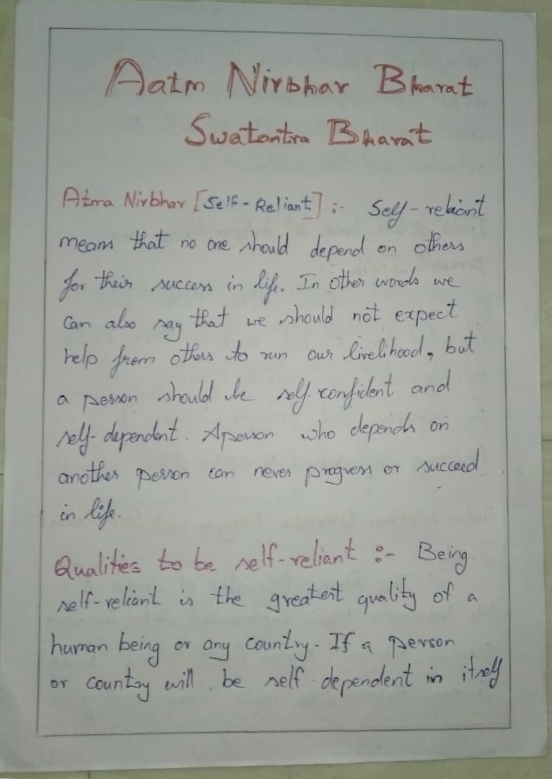 Aatm Nirbhar Bharat
Swatantra Bharat
Atma Nirbhar [Self-Reliant] :- Self-reliant
means that no one should depend on others
for their success in life. In other words we
can also say that we should not expect
help from others to run our livelihood, but
a person should be self confident and
self-dependent. A person who depends on
another person can never progress or succeed
in life.
Qualities to be self-reliant :- Being
self-reliant is the greatest quality of a
human being or any country. If a person
or country will be self dependent in itself